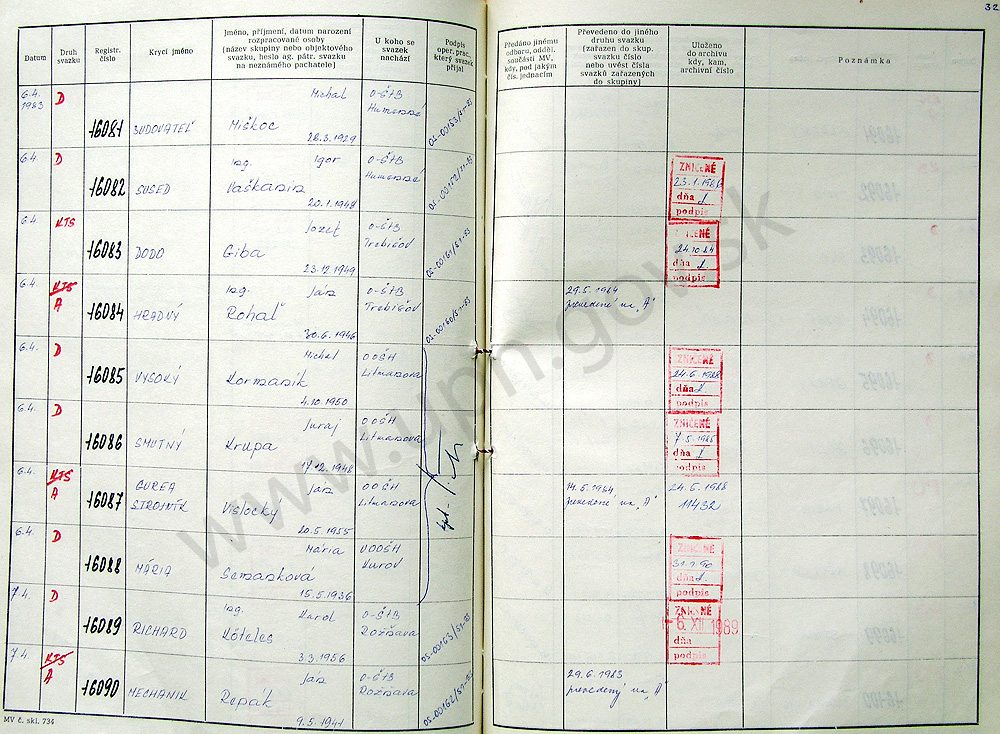 32
Datum
Druh svazku
Registr. číslo
Krycí jméno
Jméno, příjmení, datum narození
rozpracované osoby
(název skupiny nebo objektového
svazku, heslo ag. pátr. svazku
na neznámého pachatele)
U koho se
svazek
nachází
Podpis
oper. prac.,
který svazek
přijal
Předáno jinému
odboru, odděl.
součásti MV,
kdy, pod jakým
čís. jednacím
Převedeno do jiného
druhu svazku
(zařazen do skup.
svazku číslo
nebo uvést čísla
svazků zařazených
do skupiny)
Uloženo
do archivu
kdy, kam,
archivní číslo
Poznámka
6.4. 1983 D 16081 BUDOVATEĽ Michal Miškoc 28.3.1929 O-ŠTB Humenné
6.4. D 16082 SUSED Ing. Igor Vaškanin 20.1.1948 O-ŠTB Humenné
ZNIČENÉ
dňa
podpis
6.4. KTS 16083 DODO Jozef Giba 23.12.1949 O-ŠTB Trebišov
ZNIČENÉ
24.10.84
dňa
podpis
6.4. KTS A 16084 HRADNÝ Ing. Ján Rohaľ 30.6.1946 O-ŠTB Trebišov
29.5.1984
prevedené na "A"
6.4. D 16085 VYSOKÝ Michal Kormaník 4.10.1950 OOŠH Litmanova
ZNIČENÉ
24.6.1988
dňa
podpis
6.4. D 16086 SMUTNÝ Juraj Krupa 17.12.1948 OOŠH Litmanova
ZNIČENÉ
7.5.1985
dňa
podpis
6.4. KTS A 16087 STROJNÍK Ján Vislocky 20.5.1955 OOŠH Litmanova
14.5.1984
prevedené na "A"
24.5.1988
11432
6.4. D 16088 MÁRIA Mária Semanková 15.5.1936 OOŠH Kurov
ZNIČENÉ
dňa
podpis
7.4. D 16089 RICHARD Ing. Karol Köteles 3.3.1956 O-ŠTB Rožňava
ZNIČENÉ
-6. XII. 1989
dňa
podpis
7.4. KTS A 16090 MECHANIK Ján Repák 9.5.1941 O-ŠTB Rožňava
29.6.1983
prevedený na "A"
MV č. skl. 734
www.upn.gov.sk